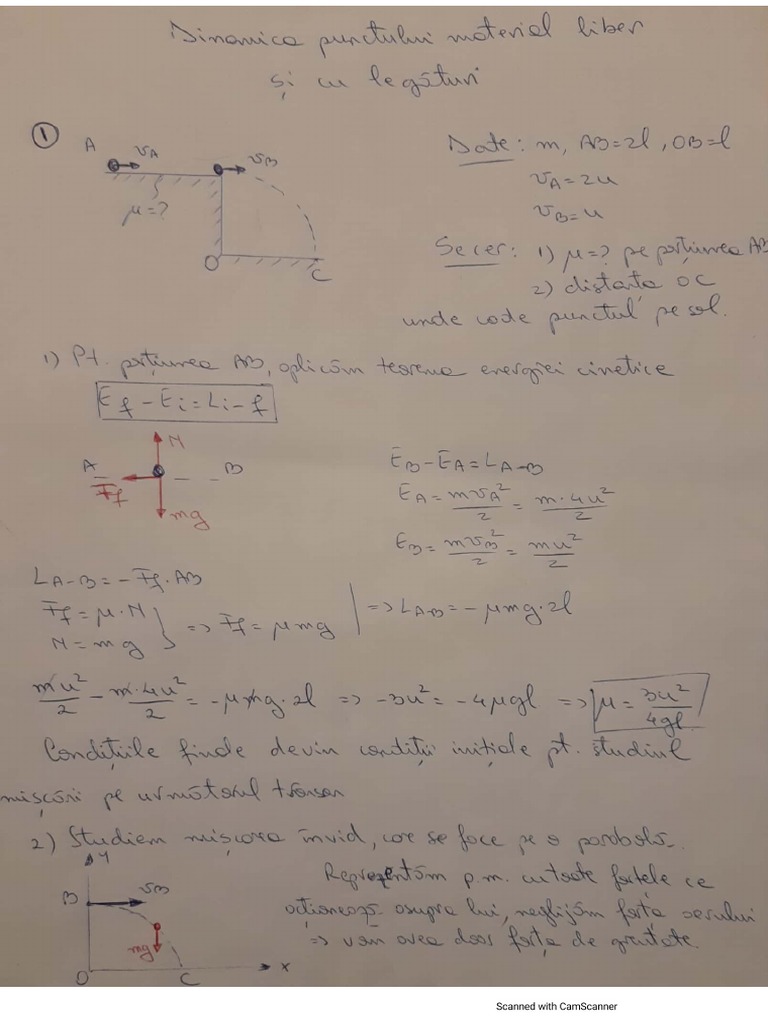 Dinamica punctului material liber
și cu legături
1
A
vA
vB
μ=?
O
C
Date: m, AB=2l, OB=l
vA=2u
vB=u
Se cer: 1) μ=? pe porțiunea AB
2) distanța OC
unde cade punctul pe sol.
1) Pt. porțiunea AB, aplicăm teorema energiei cinetice
Ef - Ei = Li-f
N
A
B
Ff
mg
EB-EA=LA-B
EA=mvA²/2=m·4u²/2
EB=mvB²/2=mu²/2
LA-B=-Ff·AB
Ff=μ·N
N=mg } => Ff=μmg | => LAB=-μmg·2l
mu²/2 - m·4u²/2 = -μmg·2l => -3u²=-4μgl => μ=3u²/4gl
Condițiile finale devin condiții inițiale pt. studiul
mișcării pe următorul tronson
2) Studiem mișcarea în vid, care se face pe o parabolă.
y
B
vB
mg
O
C
x
Reprezentăm p.m. cu toate forțele ce
acționează asupra lui, neglijăm forța aerului
=> vom avea doar forța de greutate.
Scanned with CamScanner